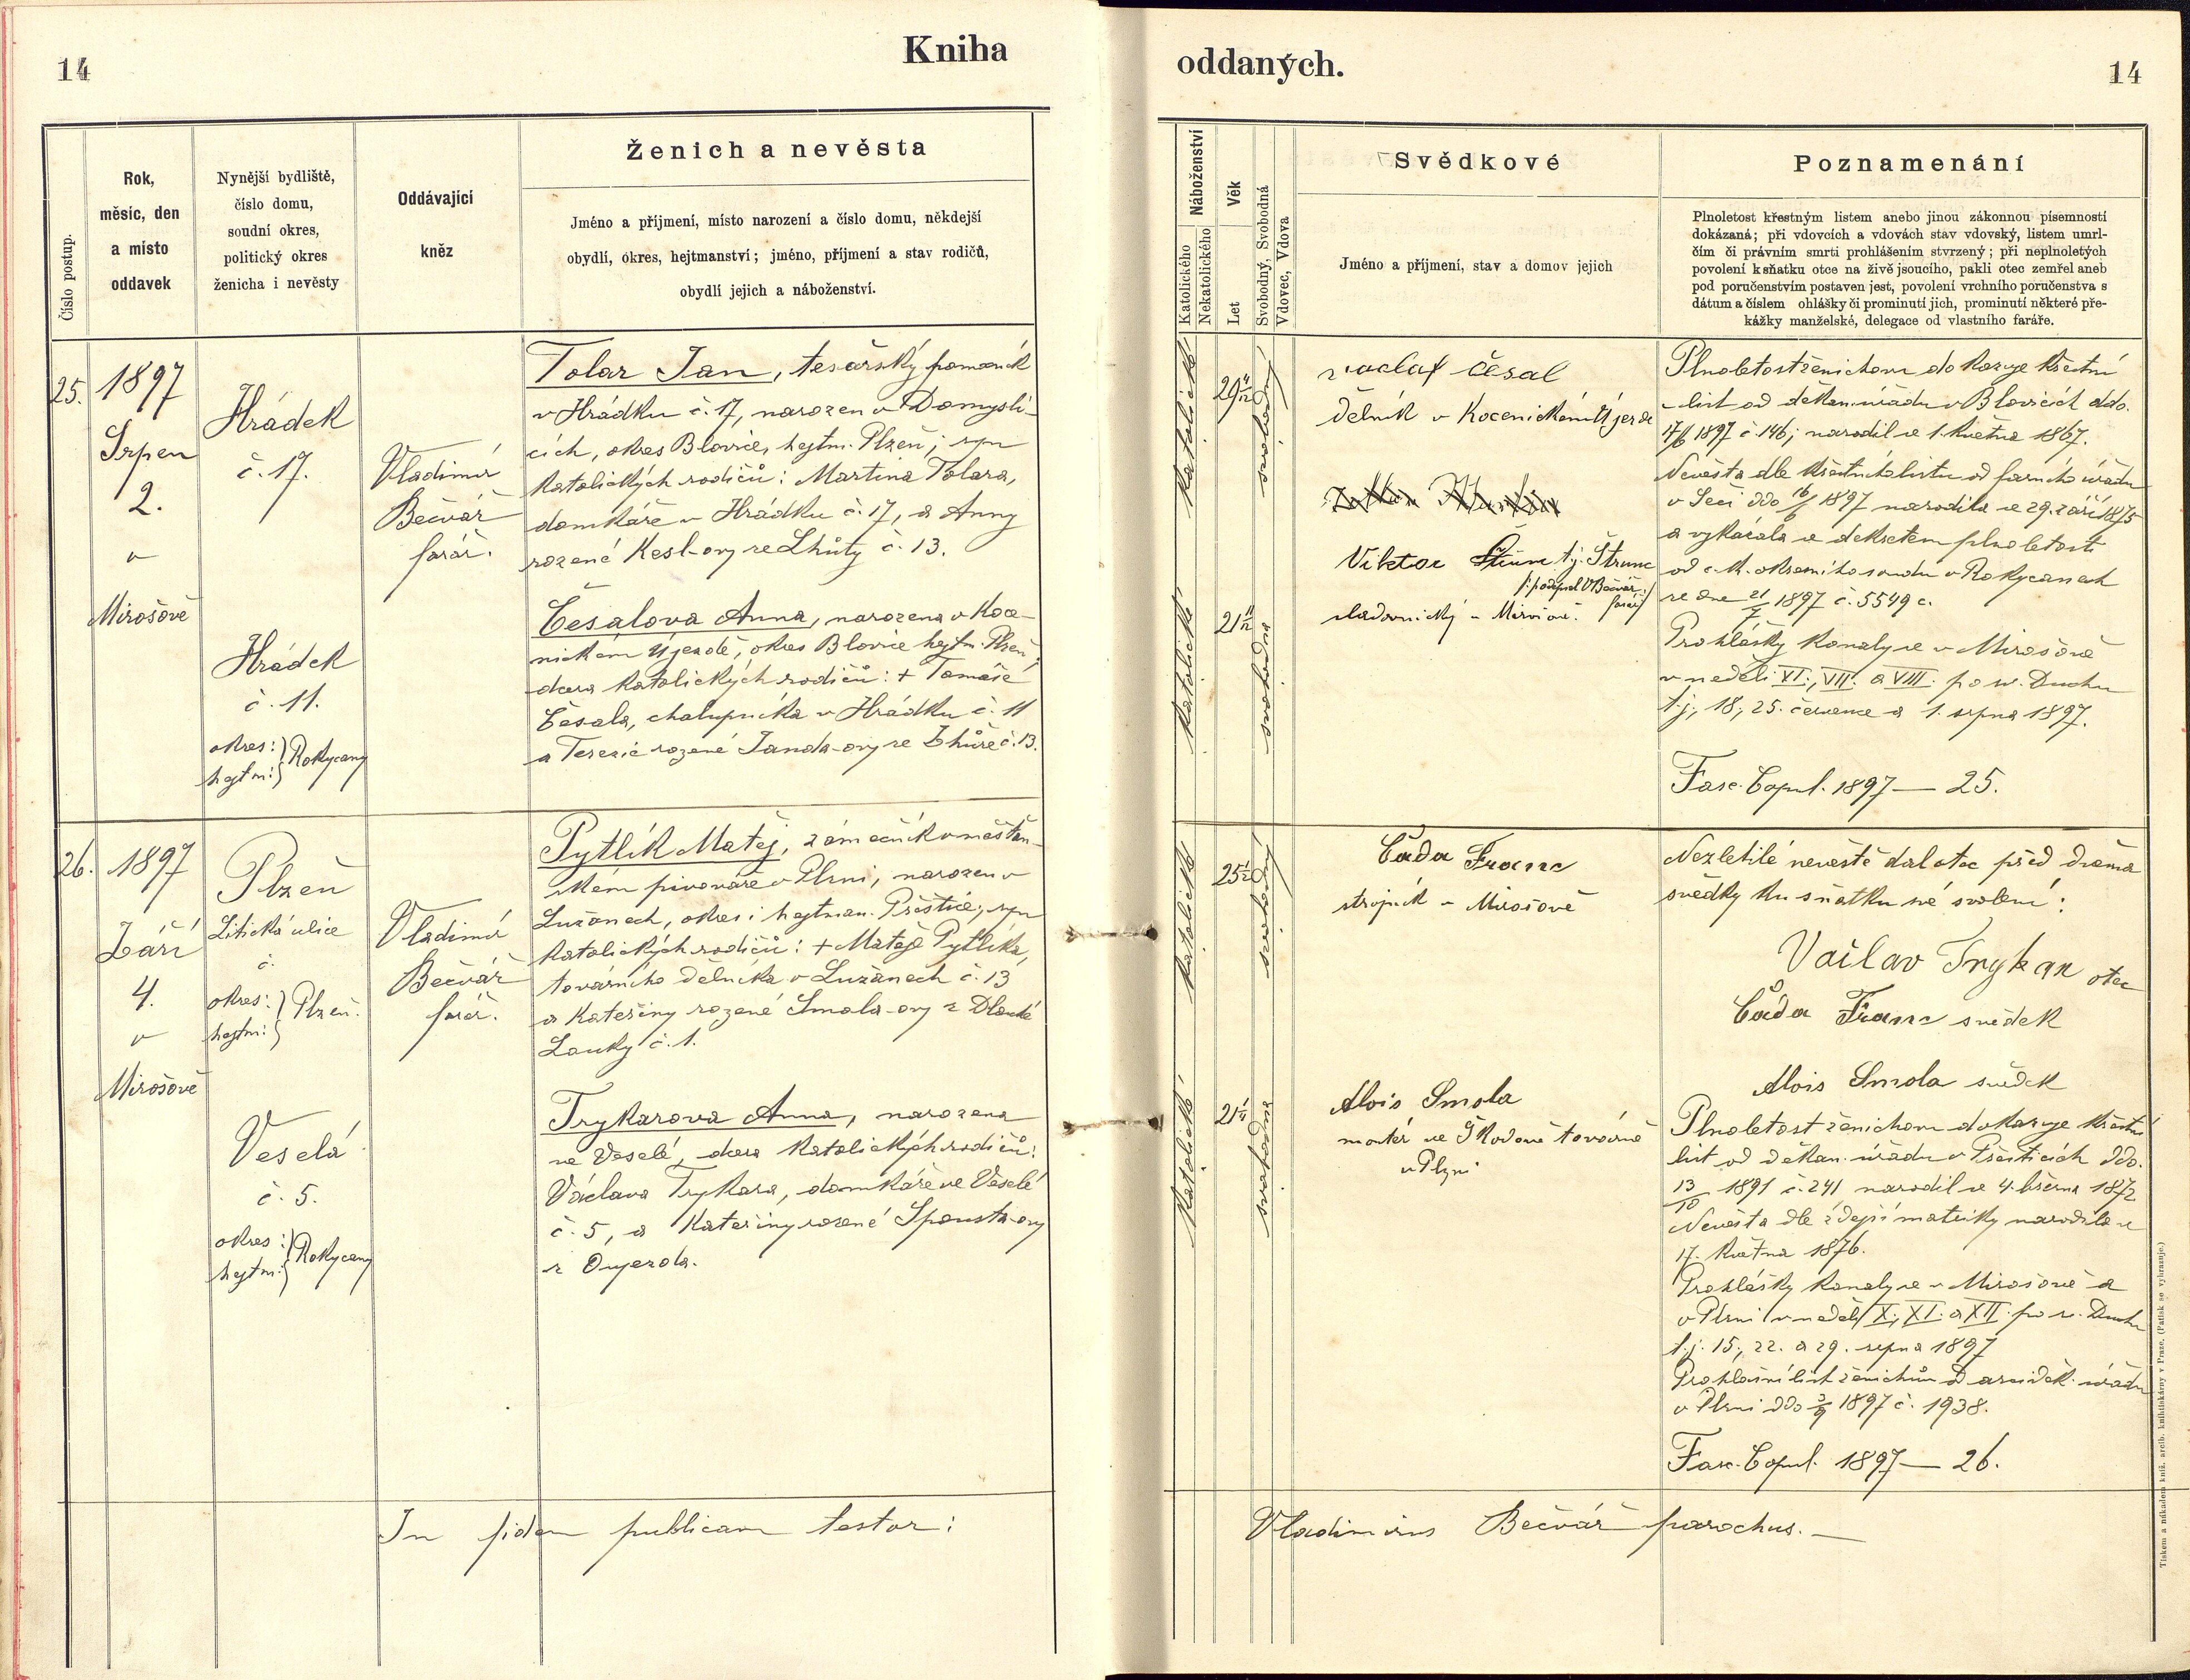 14
Kniha
Číslo postup.
Rok,
měsíc, den
a místo
oddavek
Nynější bydliště,
číslo domu,
soudní okres,
politický okres
ženicha i nevěsty
Oddávající
kněz
Ženich a nevěsta
Jméno a příjmení, místo narození a číslo domu, někdejší
obydlí, okres, hejtmanství; jméno, příjmení a stav rodičů,
obydlí jejich a náboženství.
25.
1897
Srpen
2.
v
Mirošově
Hrádek
č. 17.
Hrádek
č. 11.
okres: } Rokycany
hejtm: }
Vladimír
Bečvář
farář.
Tolar Jan, tesařský pomocník
v Hrádku č. 17, narozen v Domysli-
cích, okres Blovice, hejtm. Plzeň; syn
katolických rodičů: Martina Tolara,
domkáře v Hrádku č. 17, a Anny
rozené Kesl-ovy ze Lhůty č. 13.
Česalova Anna, narozena v Koce-
nickém Újezdě, okres Blovice hejtm. Plzeň;
dcera katolických rodičů: + Tomáše
Česala, chalupníka v Hrádku č. 11
a Terezie rozené Janda-ovy ze č. 13.
26.
1897
Září
4.
v
Mirošově
Plzeň
Litická ulice
č.
okres: } Plzeň.
hejtm: }
Veselá
č. 5.
okres: } Rokycany
hejtm: }
Vladimír
Bečvář
farář.
Pytlík Matěj, zámečník v měšťan-
ském pivováře v Plzni, narozen v
Lužanech, okres i hejtman. Přeštice, syn
katolických rodičů: + Matěje Pytlíka,
továrního dělníka v Lužanech č. 13
a Kateřiny rozené Smola-ovy z Dlouhé
Louky č. 1.
Trykarova Anna, narozena
ve Veselé, dcera katolických rodičů:
Václava Trykara, domkáře ve Veselé
č. 5, a Kateřiny rozené Spousta-ovy
z
In fidem publicam testor:
oddaných.
14
Náboženství
Katolického
Nekatolického
Věk
Let
Svobodný, Svobodná
Vdovec, Vdova
Svědkové
Jméno a příjmení, stav a domov jejich
Poznamenání
Plnoletost křestným listem anebo jinou zákonnou písemností
dokázaná; při vdovcích a vdovách stav vdovský, listem umrl-
čím či právním smrti prohlášením stvrzený; při neplnoletých
povolení k sňatku otce na živě jsoucího, pakli otec zemřel aneb
pod poručenstvím postaven jest, povolení vrchního poručenstva s
dátum a číslem ohlášky či prominutí jich, prominutí některé pře-
kážky manželské, delegace od vlastního faráře.
katolické
svobodný
Česal
dělník v Kocenickém Újezdě
katolické
svobodná
Viktor t.j. Štrunc
/: podepsal V Bečvář
farář :/
v Mirošově.
Plnoletost ženichovu dokazuje křestní
list od děkan. úřadu v Blovicích ddo.
17/6 1897 č. 146; narodil se 1. května 1867.
Nevěsta dle křestního listu od farního úřadu
v Seči ddo 16/6 1897 narodila se 29. září 1875
a vykázala se dekretem plnoletosti
od c. k. okresního soudu v Rokycanech
ze dne 21/7 1897 č. 5549 c.
Prohlášky konaly se v Mirošově
v neděli VI., VII. a VIII. po sv. Duchu
t. j. 18., 25. července a 1. srpna 1897.
Fasc. Copul. 1897 — 25.
katolické
svobodný
Čada Franc
strojník v Mirošově
katolické
svobodná
Alois Smola
montér ve Škodově továrně
v Plzni
Nezletilé nevěstě dal otec před dvěma
svědky ku sňatku své svolení:
Václav Trykar otec
Čada Franc svědek
Alois Smola svědek
Plnoletost ženichovu dokazuje křestní
list od děkan. úřadu v Přešticích ddo.
13/10 1891 č. 241 narodil se 4. března 1872
Nevěsta dle zdejší matriky narodila se
17. května 1876.
Prohlášky konaly se v Mirošově a
v Plzni v neděli X., XI. a XII. po sv. Duchu
t. j. 15., 22. a 29. srpna 1897
Prohlašní list ženichův od arciděk. úřadu
v Plzni ddo 3/9 1897 č. 1938.
Fasc. Copul. 1897 — 26.
Vladimirus Bečvář parochus. —
Tiskem a nákladem kníž. arcib. knihtiskárny v Praze. (Patisk se vyhrazuje.)